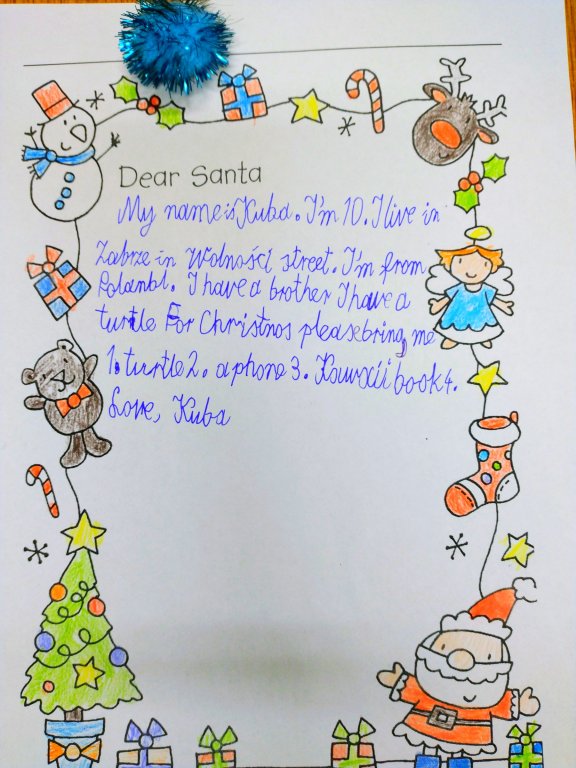 Dear Santa
My name is Kuba. I'm 10. I live in
Zabrze in Wolności street. I'm from
Polanbl. I have a brother I have a
turtle For Christnos please bring me
1. turtle 2. a phone 3. Kawaii book 4.
Love, Kuba